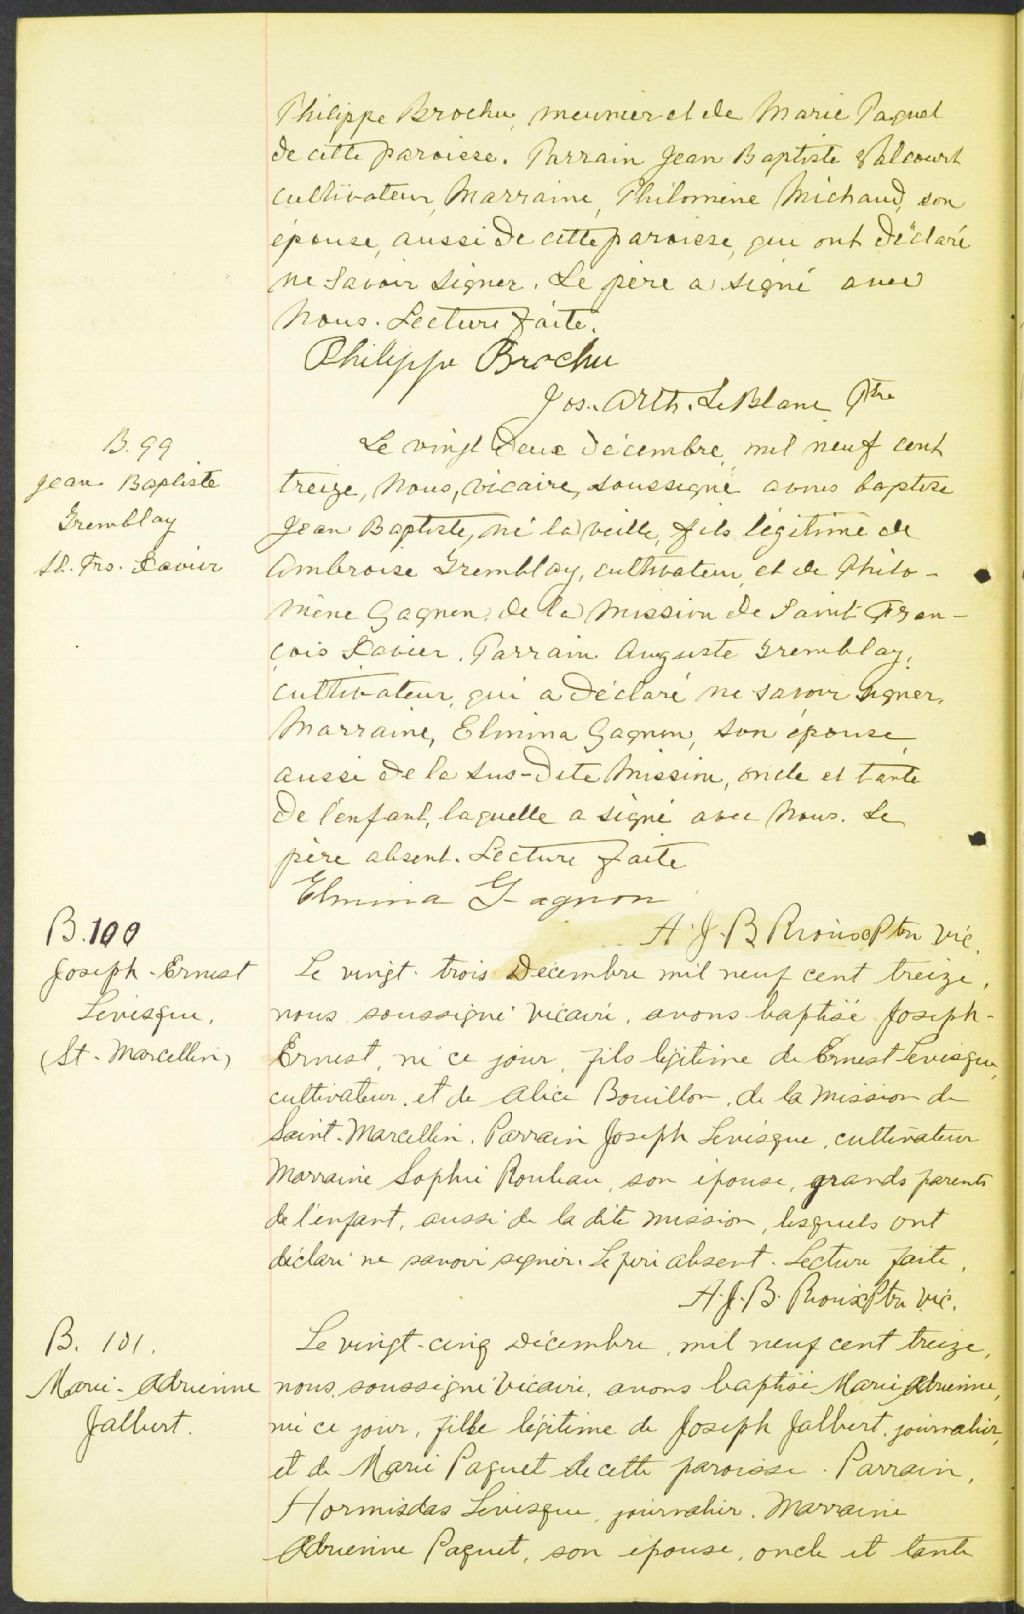 Philippe Brochu, meunier et de Marie Paquet
de cette paroisse. Parrain Jean Baptiste Valcourt
cultivateur, Marraine, Philomène Michaud, son
épouse, aussi de cette paroisse, qui ont déclaré
ne savoir signer. Le père a signé avec
nous. Lecture faite.
Philippe Brochu
Jos. Arth. LeBlanc Ptre
B. 99
Jean Baptiste
Tremblay
St. Frs. Xavier
Le vingt deux décembre, mil neuf cent
treize, nous, vicaire, soussigné avons baptisé
Jean Baptiste, né la veille, fils légitime de
Ambroise Tremblay, cultivateur, et de Philo-
mène Gagnon, de la mission de Saint Fran-
çois Xavier. Parrain Auguste Tremblay,
cultivateur, qui a déclaré ne savoir signer.
Marraine, Elmina Gagnon, son épouse,
aussi de la sus-dite mission, oncle et tante
de l'enfant, laquelle a signé avec nous. Le
père absent. Lecture faite
Elmina Gagnon
A. J. B. Rioux Ptre Vic.
B. 100
Joseph-Ernest
Levisque.
(St-Marcellin)
Le vingt-trois Décembre mil neuf cent treize,
nous soussigné vicaire, avons baptisé Joseph-
Ernest, né ce jour, fils légitime de Ernest Levisque,
cultivateur, et de Alice Bouillon, de la mission de
Saint-Marcellin. Parrain Joseph Levisque, cultivateur
Marraine Sophie Rouleau, son épouse, grands parents
de l'enfant, aussi de la dite mission, lesquels ont
déclaré ne savoir signer. Le père absent. Lecture faite.
A. J. B. Rioux Ptre Vic.
B. 101.
Marie-Adrienne
Jalbert.
Le vingt-cinq Décembre, mil neuf cent treize,
nous, soussigné vicaire, avons baptisé Marie Adrienne,
née ce jour, fille légitime de Joseph Jalbert, journalier,
et de Marie Paquet de cette paroisse. Parrain,
Hormisdas Levisque, journalier. Marraine
Adrienne Paquet, son épouse, oncle et tante